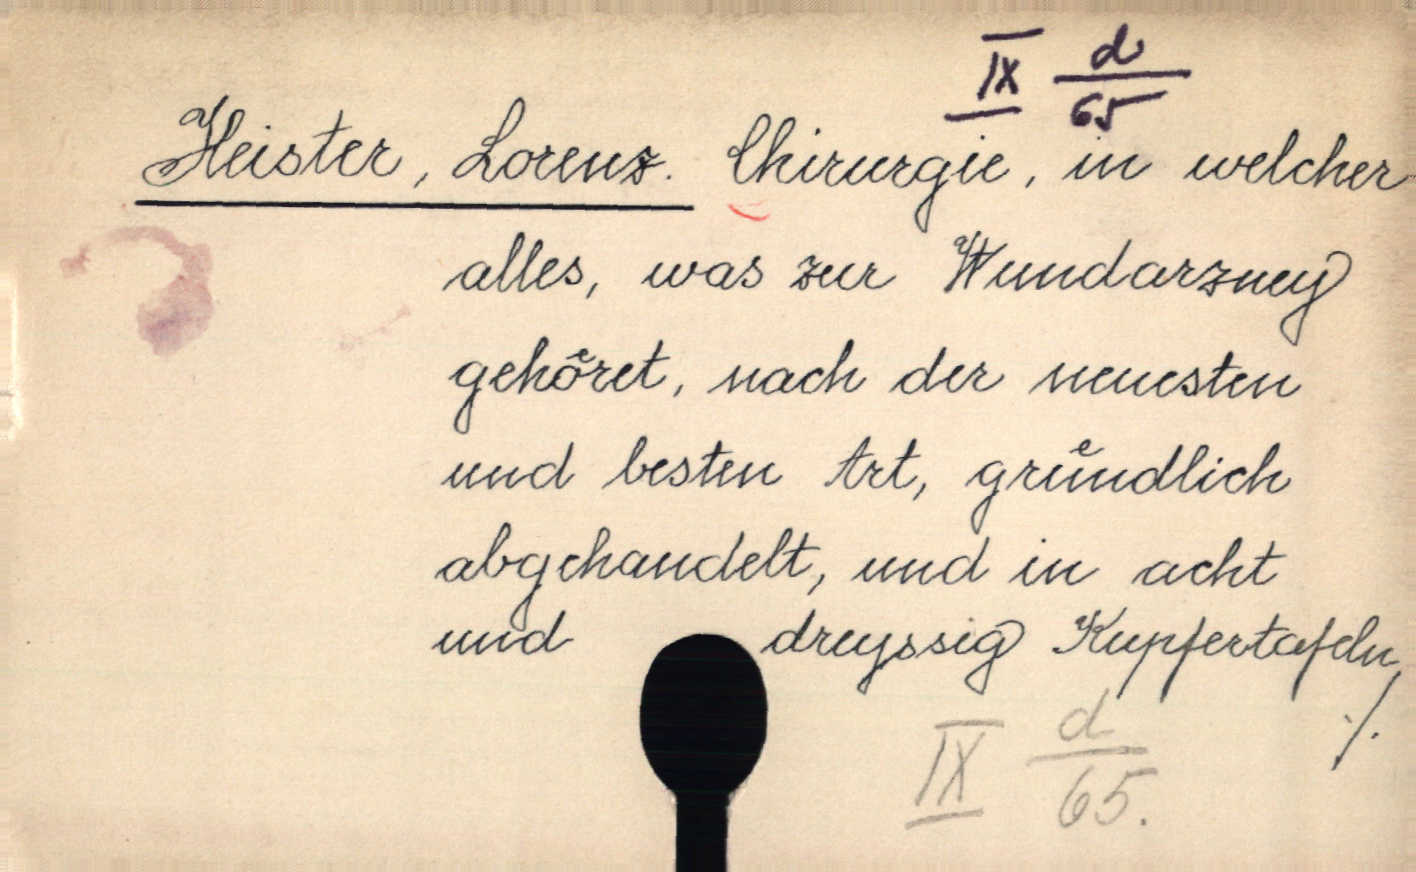 IX d/65
Heister, Lorenz. Chirurgie, in welcher
alles, was zur Wundarzney
gehoͤret, nach der neuesten
und besten Art, gruͤndlich
abgehandelt, und in acht
und dreyssig Kupfertafeln
./.
IX d/65.